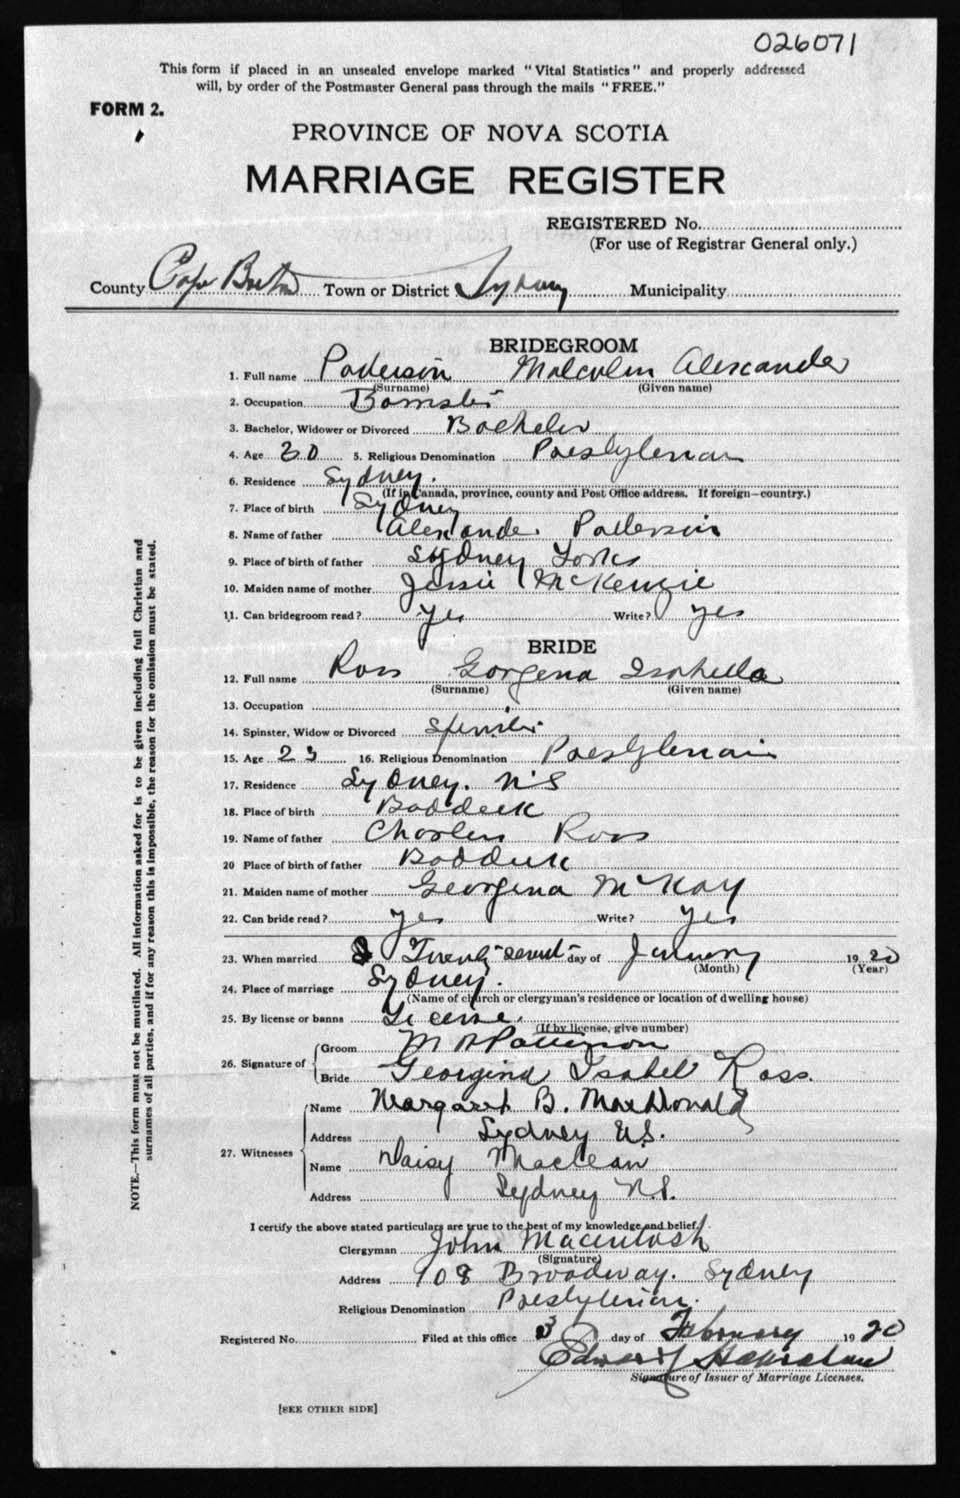 026071
This form if placed in an unsealed envelope marked "Vital Statistics" and properly addressed
will, by order of the Postmaster General pass through the mails "FREE."
FORM 2.
PROVINCE OF NOVA SCOTIA
MARRIAGE REGISTER
REGISTERED No.
(For use of Registrar General only.)
County Cape Breton Town or District Sydney Municipality
BRIDEGROOM
1. Full name Patterson Malcolm Alexander
(Surname) (Given name)
2. Occupation Barrister
3. Bachelor, Widower or Divorced Bachelor
4. Age 30 5. Religious Denomination Presbyterian
6. Residence Sydney.
(If in Canada, province, county and Post Office address. If foreign—country.)
7. Place of birth Sydney
8. Name of father Alexander Patterson
9. Place of birth of father Sydney Forks
10. Maiden name of mother Jessie McKenzie
11. Can bridegroom read? Yes Write? Yes
BRIDE
12. Full name Ross Gorgena Isabella
(Surname) (Given name)
13. Occupation
14. Spinster, Widow or Divorced Spinster
15. Age 23 16. Religious Denomination Presbyterian
17. Residence Sydney. N S
18. Place of birth Baddeck
19. Name of father Charles Ross
20 Place of birth of father Baddeck
21. Maiden name of mother Georgena McKay
22. Can bride read? Yes Write? Yes
23. When married Twenty-second day of January 1920
(Month) (Year)
24. Place of marriage Sydney.
(Name of church or clergyman's residence or location of dwelling house)
25. By license or banns License.
(If by license, give number)
26. Signature of Groom M A Patterson
Bride Georgina Isabel Ross.
27. Witnesses Name Margaret B. MacDonald
Address Sydney N.S.
Name Daisy Maclean
Address Sydney N.S.
I certify the above stated particulars are true to the best of my knowledge and belief.
Clergyman John Macintosh
(Signature)
Address 908 Broadway. Sydney
Religious Denomination Presbyterian.
Registered No. Filed at this office 3 day of February 1920
Edward
Signature of Issuer of Marriage Licenses.
[SEE OTHER SIDE]
NOTE.—This form must not be mutilated. All information asked for is to be given including full Christian and
surnames of all parties, and if for any reason this is impossible, the reason for the omission must be stated.